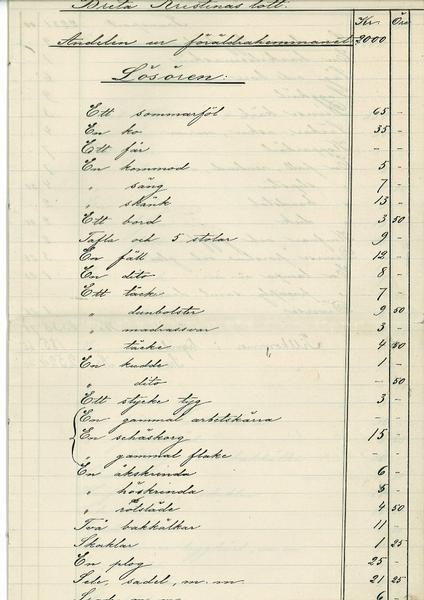 Brita Kristinas lott.
Kr. Öre
Andelen ur föräldrahemmanet 2000
Lösören:
Ett sommarföl 65 -
En ko 35 -
Ett får - -
En kommod 5 -
" säng 7 -
" skänk 13 -
Ett bord 3 50
Tafla och 5 stolar 9 -
En fäll 12 -
En dito 8 -
Ett täcke 7 -
" dunbolster 9 50
" madrassvar 3 -
" täcke 4 50
En kudde 1 -
" dito - 50
Ett stycke tyg 3 -
En gammal arbetskärra
En schäskorg 15 -
" gammal flake -
En åkskrinda 6 -
" höskrinda 5 -
" 4 50
Två bakkälkar 11 -
Skaklar 1 25
En plog 25 -
Sele, sadel, m. m. 21 25
6 -